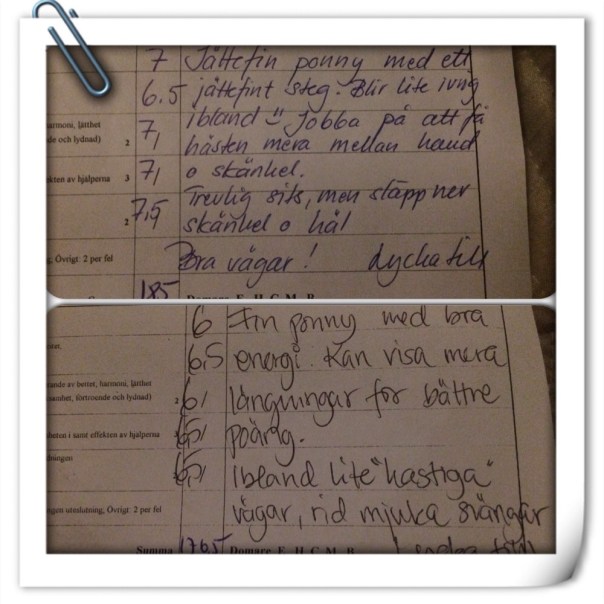 7 Jättefin ponny med ett
6.5 jättefint steg. Blir lite ivrig
ibland Jobba på att få
harmoni, lätthet
de och lydnad) 2 7, hästen mera mellan hand
ekten av hjälperna 3 7, o skänkel.
Trevlig sits, men släpp ner
2 7,5 skänkel o häl
g; Övrigt: 2 per fel
Bra vägar! Lycka till
185
6 Fin ponny med bra
6,5 energi. Kan visa mera
rande av bettet, harmoni, lätthet
samhet, förtroende och lydnad) 6, längningar för bättre
heten i samt effekten av hjälperna 6,5 poäng.
6,5 Ibland lite "hastiga"
vägar, rid mjuka svängar
ngen uteslutning; Övrigt: 2 per fel
Summa 176,5 Domare